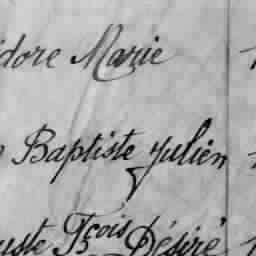 idore Marie
Baptiste Julien
uste Fçois Désiré